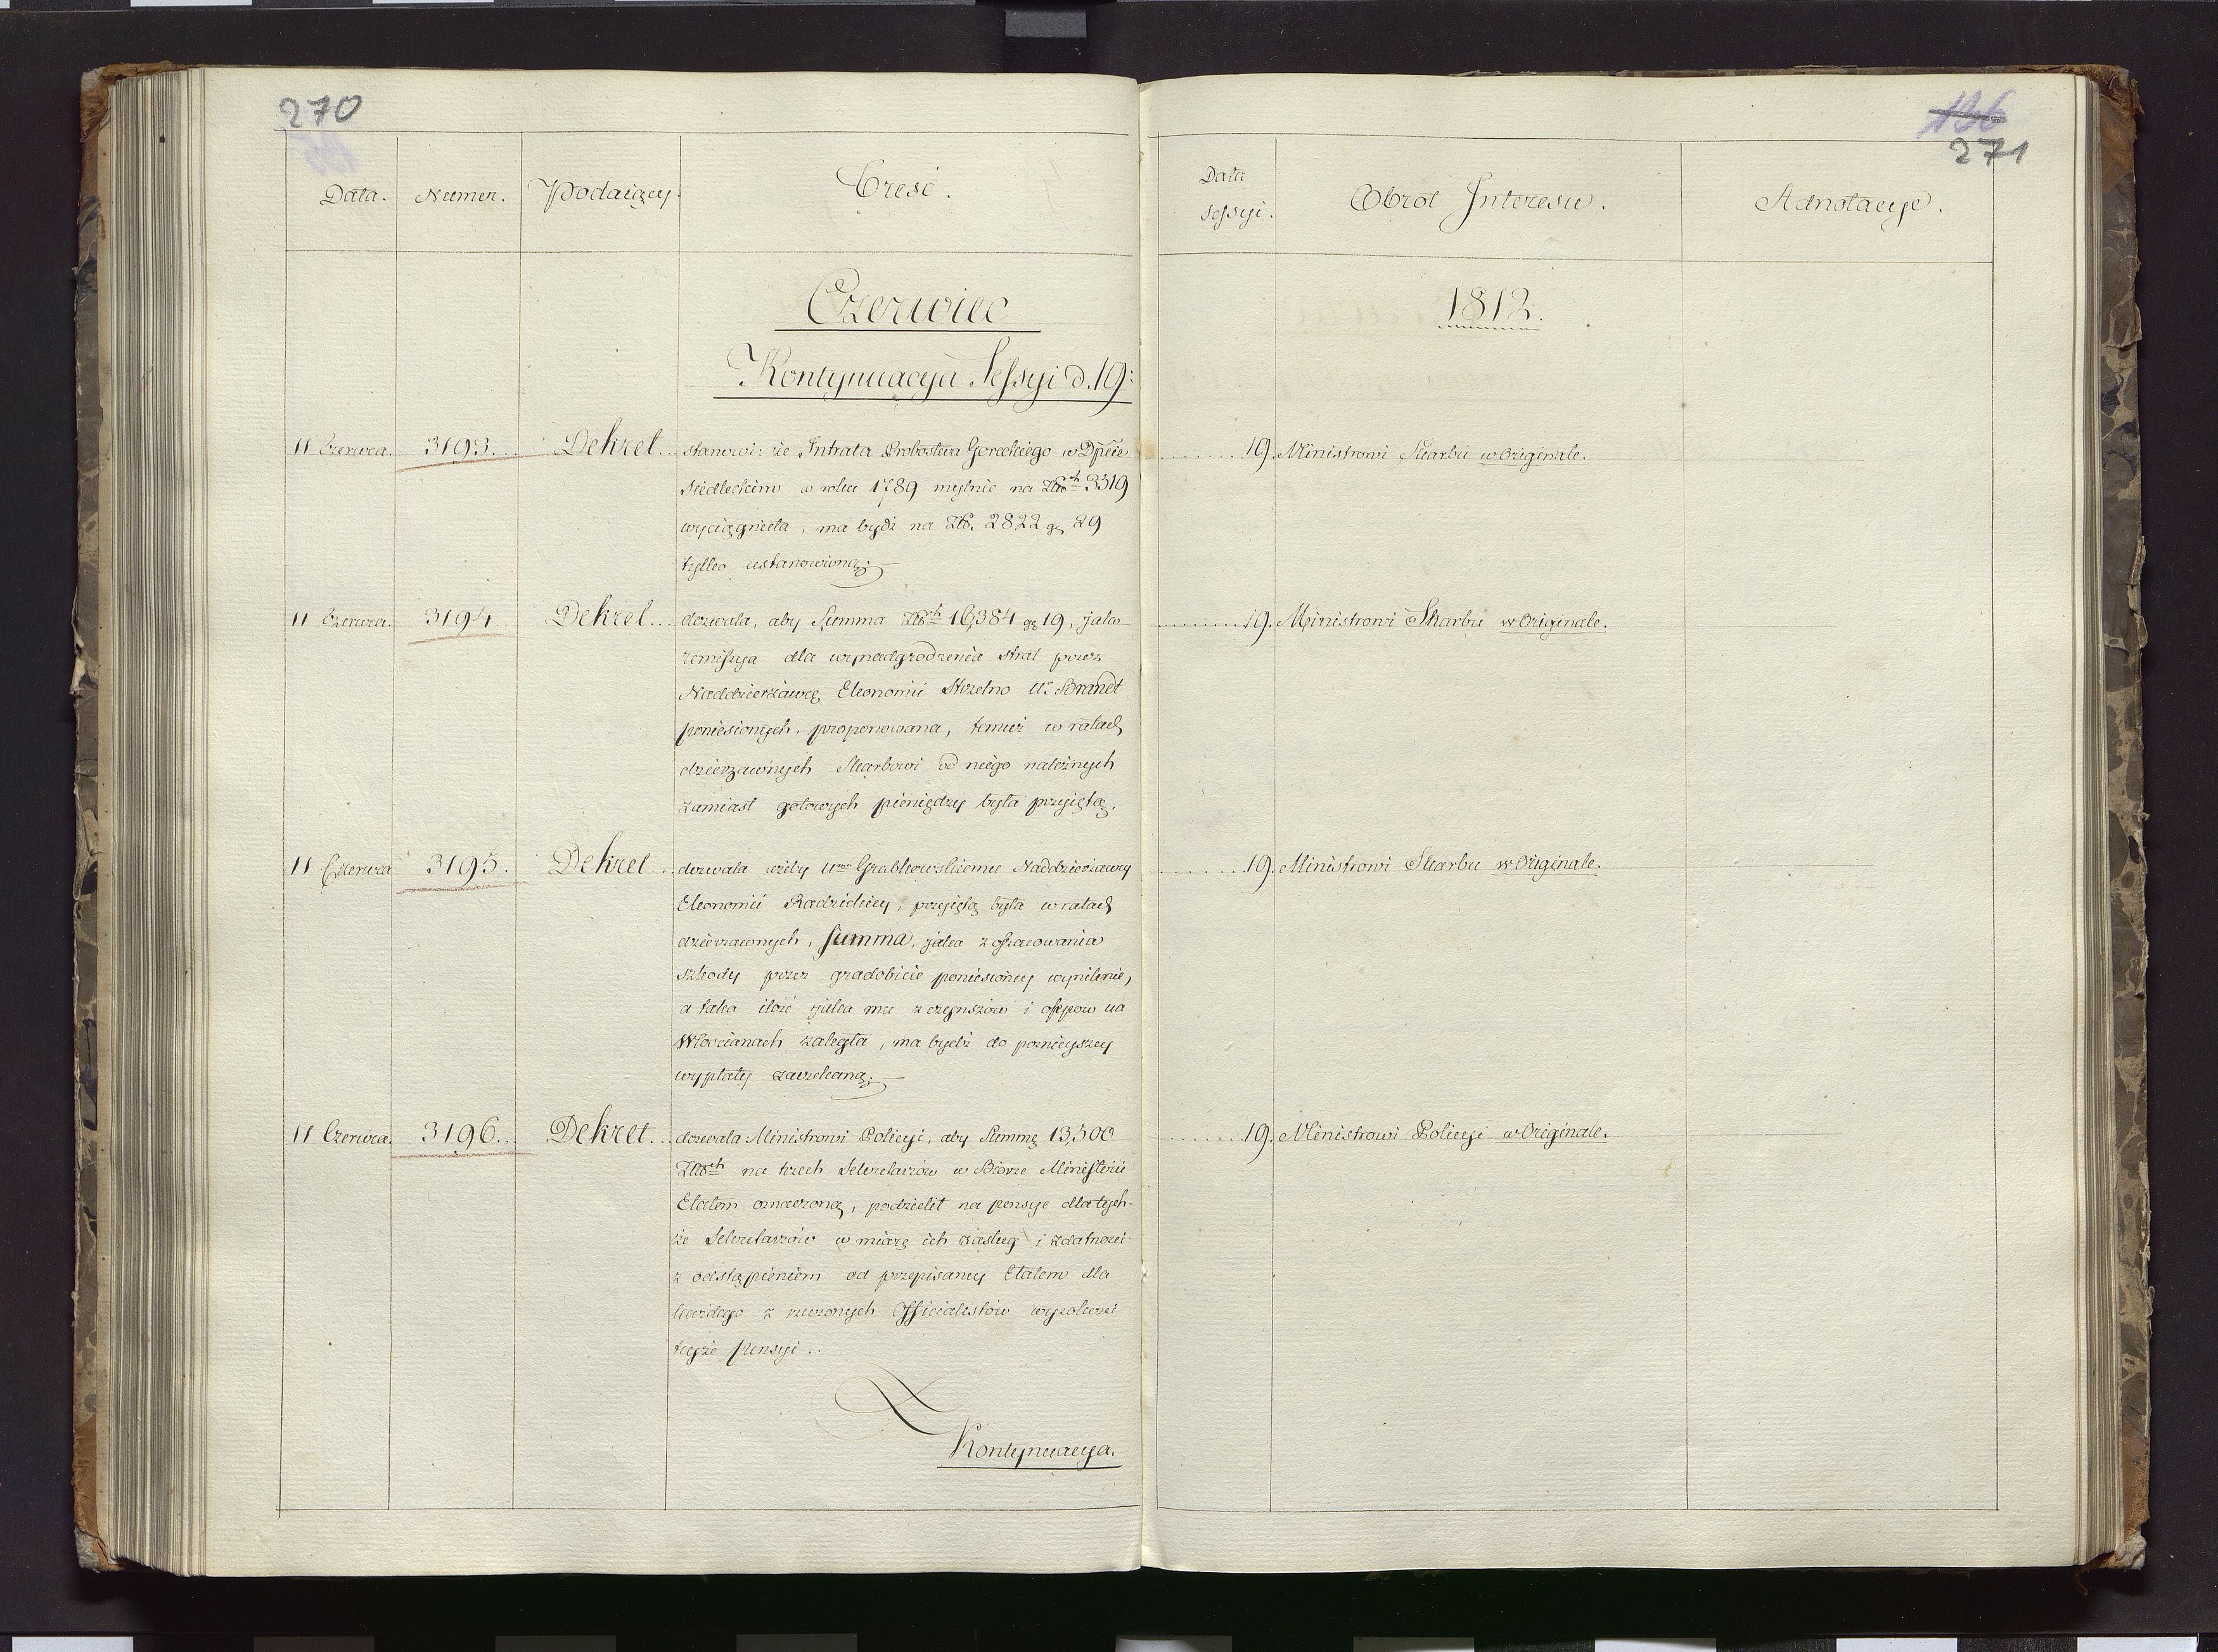 270
Data.
Numer.
Podaiący.
Treść.
Czerwiec
Kontynuacya Sessyi d. 19:
11 Czerwca. 3193. Dekret stanowi: że Intrata Probostwa Goreckiego w Dpcie
Siedleckim w roku 1789 mylnie na Złłch 3519
wyciągnięta, ma bydź na Zł. 2822 gr 29
tylko ustanowioną;
11 Czerwca. 3194. Dekret dozwala, aby Summa Złłch 16,384 gr 19, jako
remissya dla wynadgrodzenia strat przez
Naddzierżawcę Ekonomii Strzelno Uo Brandt
poniesionych, proponowana, temuż w ratach
dzierzawnych Skarbowi od niego należnych
zamiast gotowych pieniędzy była przyiętą.
11 Czerwca 3195. Dekret dozwala ażeby Umu Grabkowskiemu Naddzierżawcy
Ekonomii Radzickiey, przyiętą była w ratach
dzierzawnych, Summa, jaka z oszacowania
szkody przez gradobicie poniesioney wyniknie,
a taka ilość jaka mu z czynszów i ossepow na
Włoscianach zaległa, ma bydź do poznieyszey
wypłaty zawieszoną;
11 Czerwca. 3196. Dekret dozwala Ministrowi Policyi, aby Summę 13,500
Złłch na trzech Sekretarzów w Biorze Ministerii
Etatem oznaczoną, podzielił na pensye dla tych-
że Sekretarzów w miarę ich zasług i zdatności
z odstąpieniem od przepisaney Etatem dla
każdego z rzeczonych Officialistów wysokości
teyże pensyi..
Kontynuacya.
136
271
Data
Sessyi.
Obrot Interesu.
Adnotacye.
1812.
19. Ministrowi Skarbu w Originale.
19. Ministrowi Skarbu w Originale.
19. Ministrowi Skarbu w Originale.
19. Ministrowi Policyi w Originale.